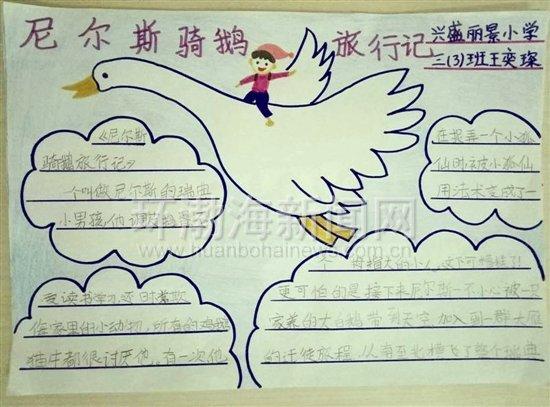 尼尔斯骑鹅旅行记
兴盛丽景小学
三(3)班王奕琛
《尼尔斯
骑鹅旅行记》
一个叫做尼尔斯的瑞典
小男孩,他调皮捣蛋不
爱读书学习,还时常欺
侮家里的小动物,所有的鸡鹅
猫牛都很讨厌他。有一次他
在捉弄一个小狐
仙时被小狐仙
用法术变成了一
个拇指大的小人,这下可糟糕了!
更可怕的是接下来尼尔斯一不小心被一只
家养的大白鹅带到天空加入到一群大雁
的迁徙旅程,从南至北横飞了整个瑞典
环渤海新闻网
www.huanbohainews.com.cn